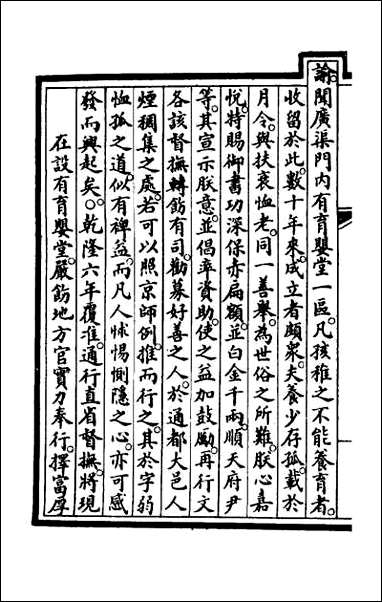 諭。聞廣渠門內有育嬰堂一區。凡孩稚之不能養育者。
收留於此。數十年來。成立者頗衆。夫養少存孤。載於
月令。與扶衰恤老。同一善舉。爲世俗之所難。朕心嘉
悅。特賜御書功深保赤扁額。並白金千兩。順天府尹
等。其宣示朕意。並倡率資助。使之益加鼓勵。再行文
各該督撫。轉飭有司。勸募好善之人。於通都大邑人
煙稠集之處。若可以照京師例。推而行之。其於字弱
恤孤之道。似有裨益。而凡人怵惕惻隱之心。亦可感
發而興起矣。○乾隆六年覆准。通行直省督撫。將現
在設有育嬰堂。嚴飭地方官實力奉行。擇富厚